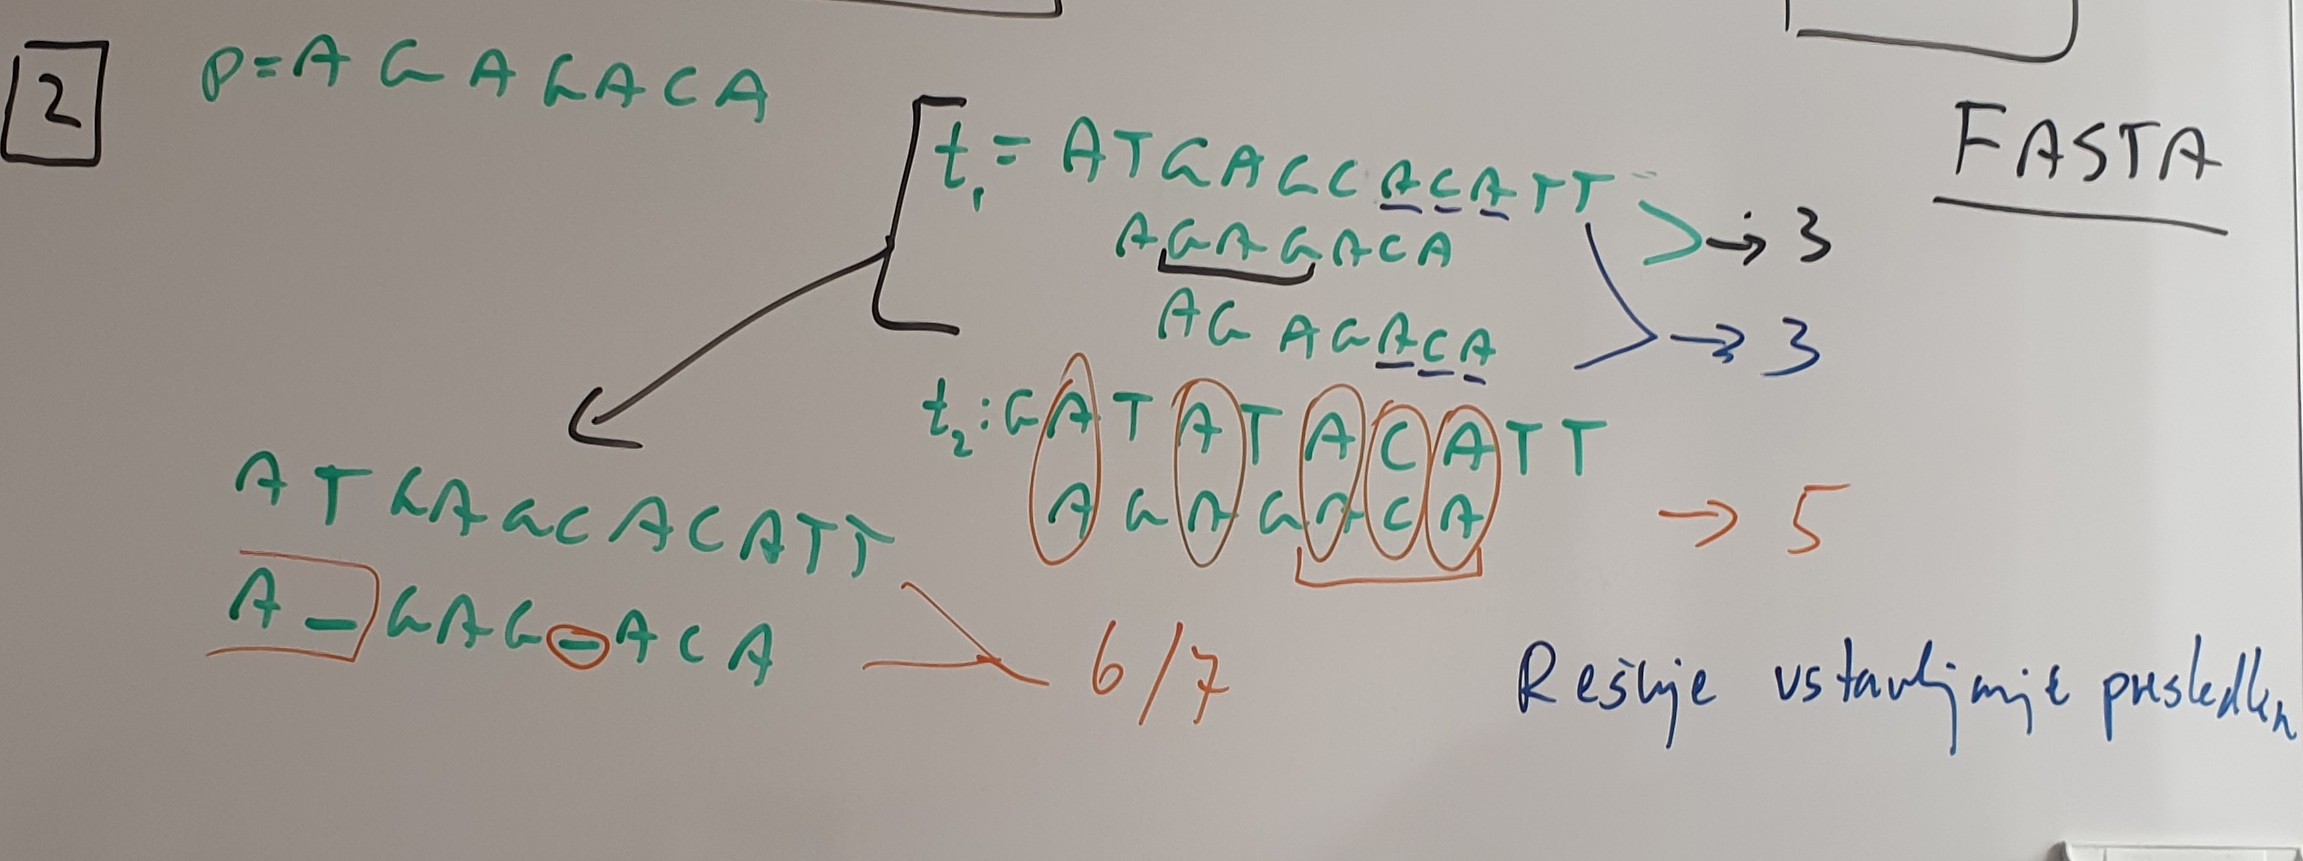 2
p = A G A G A C A
t₁ = A T G A G C A C A T T
A G A G A C A → 3
A G A G A C A → 3
FASTA
t₂ : G A T A T A C A T T
A G A G A C A → 5
A T G A G C A C A T T
A - G A G - A C A
6/7
Rešuje vstavljanje presledkov